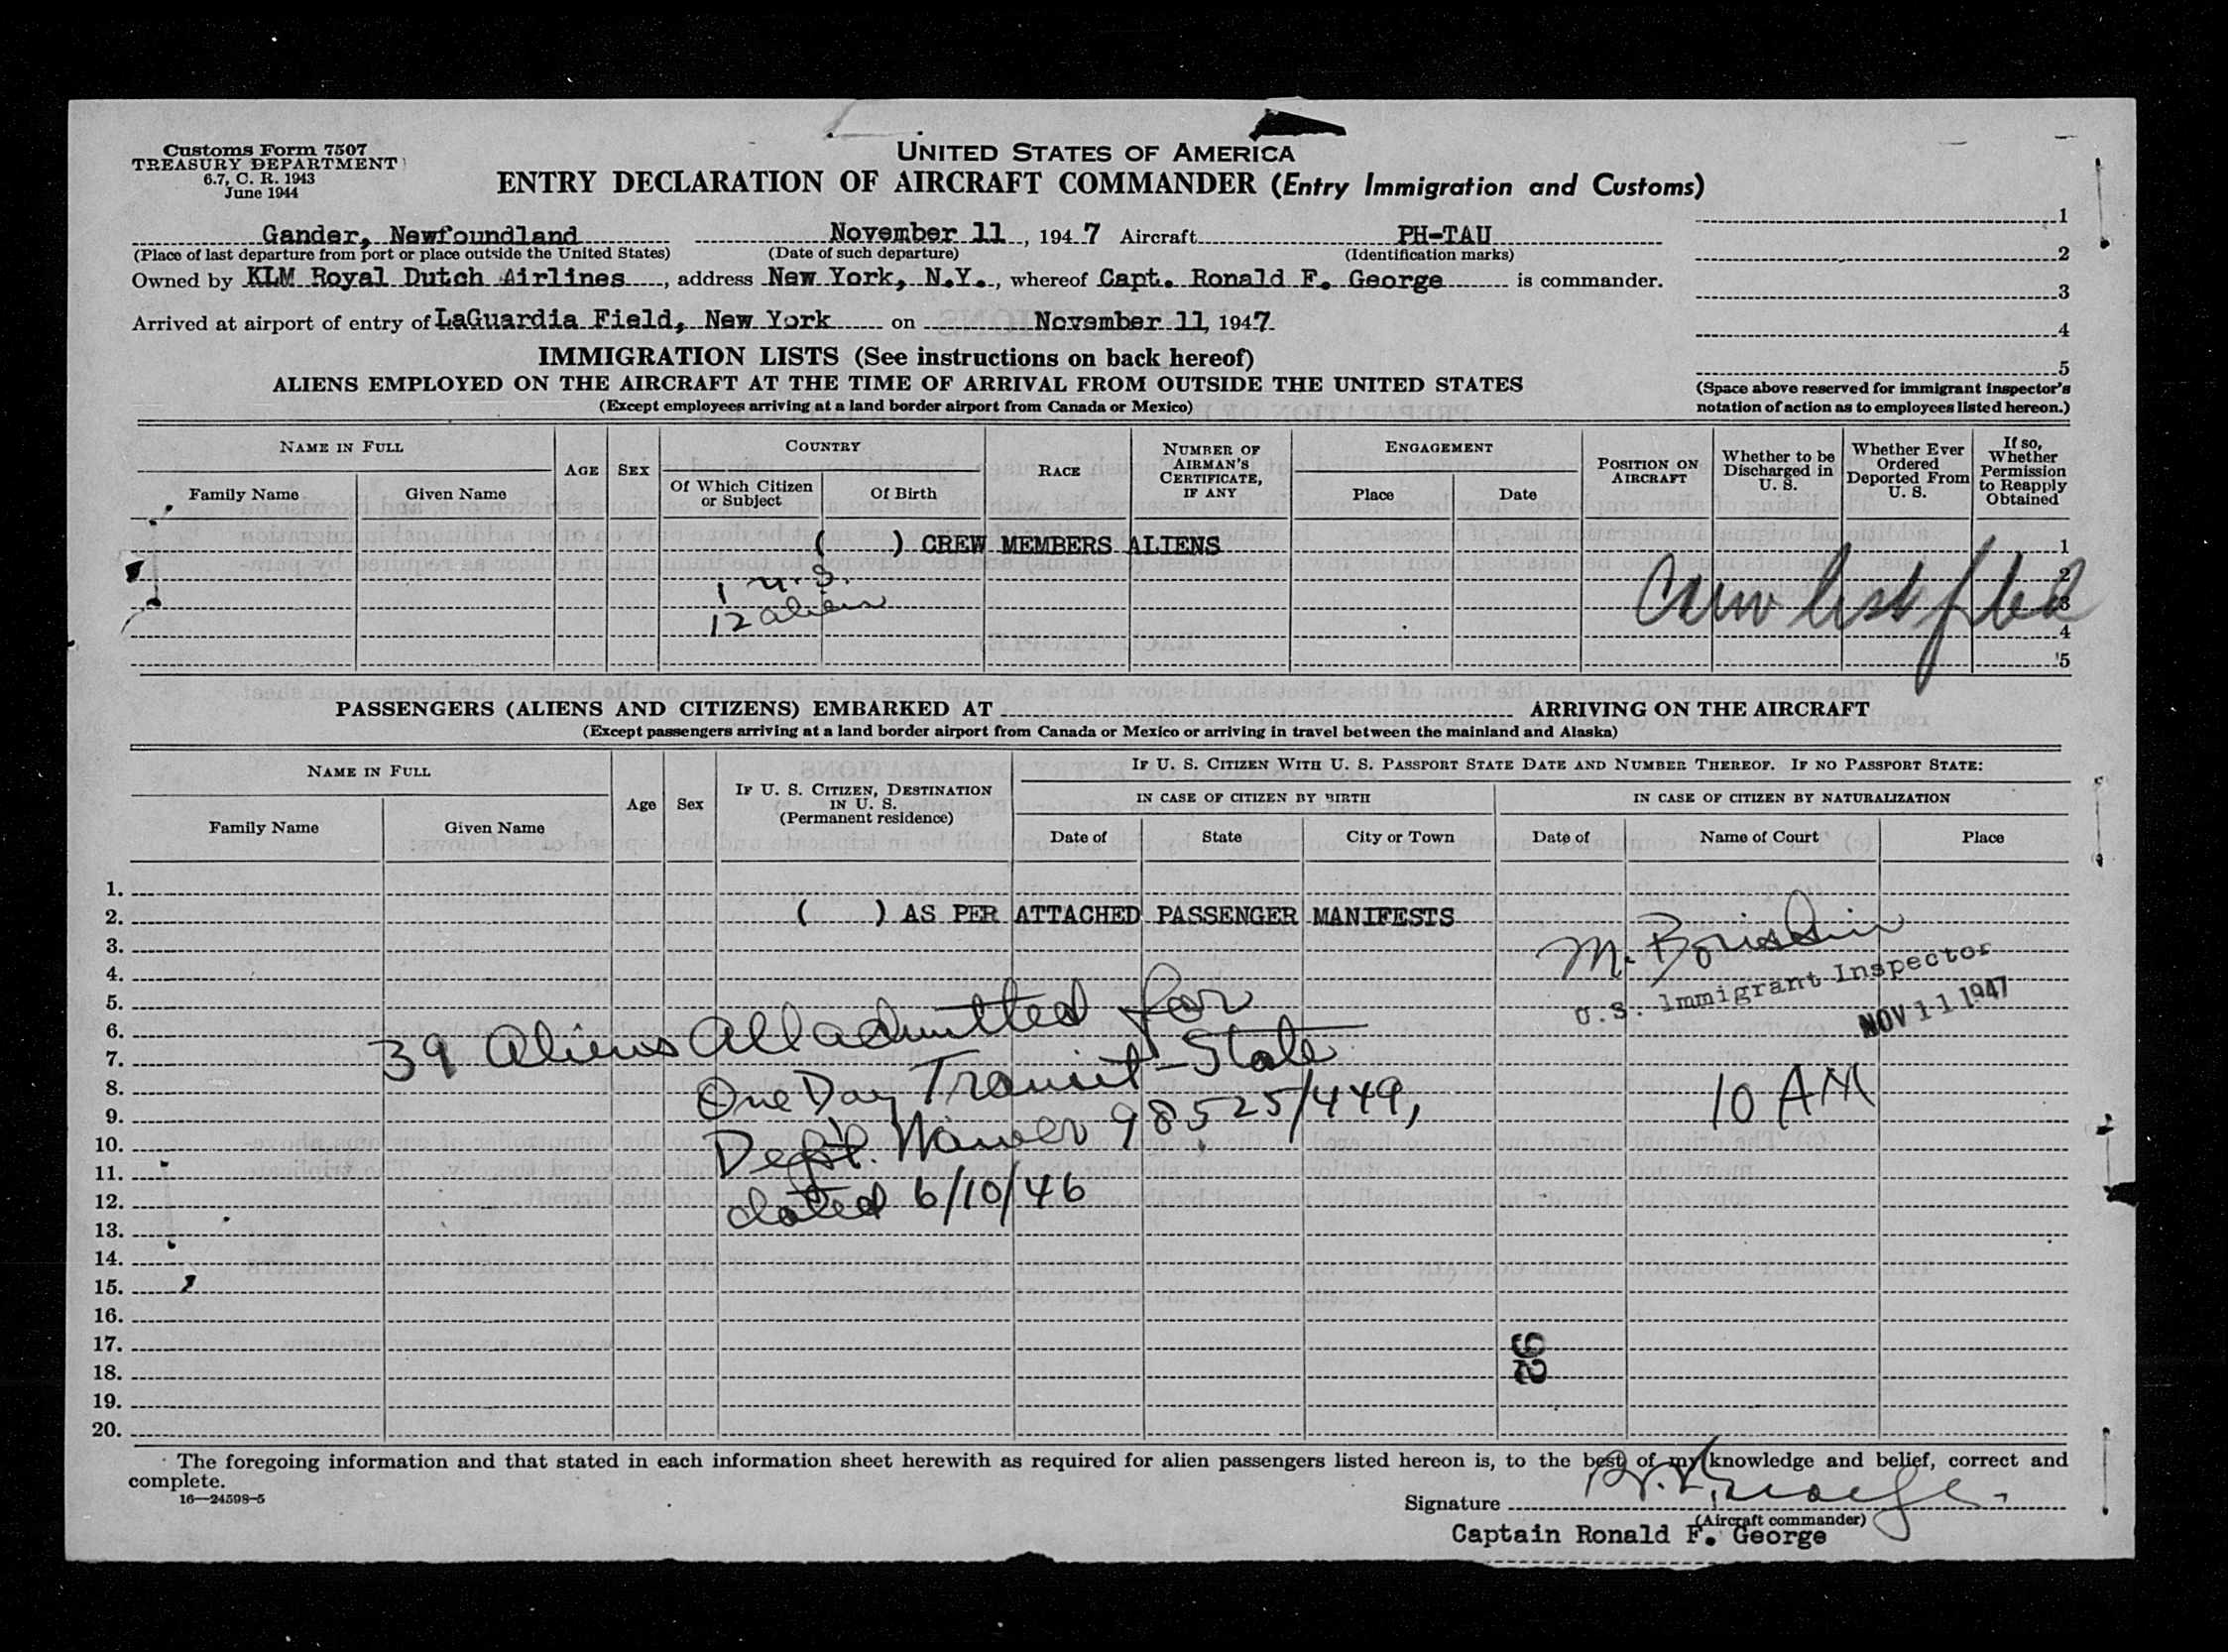 Customs Form 7507
TREASURY DEPARTMENT
6.7, C. R. 1943
June 1944
UNITED STATES OF AMERICA
ENTRY DECLARATION OF AIRCRAFT COMMANDER (Entry Immigration and Customs)
Gander, Newfoundland November 11, 1947 Aircraft PH-TAU
(Place of last departure from port or place outside the United States) (Date of such departure) (Identification marks)
Owned by KLM Royal Dutch Airlines, address New York, N.Y., whereof Capt. Ronald F. George is commander.
Arrived at airport of entry of LaGuardia Field, New York on November 11, 1947.
1
2
3
4
5
(Space above reserved for immigrant inspector's
notation of action as to employees listed hereon.)
IMMIGRATION LISTS (See instructions on back hereof)
ALIENS EMPLOYED ON THE AIRCRAFT AT THE TIME OF ARRIVAL FROM OUTSIDE THE UNITED STATES
(Except employees arriving at a land border airport from Canada or Mexico)
NAME IN FULL
Family Name
Given Name
AGE
SEX
COUNTRY
Of Which Citizen
or Subject
Of Birth
RACE
NUMBER OF
AIRMAN'S
CERTIFICATE,
IF ANY
ENGAGEMENT
Place
Date
POSITION ON
AIRCRAFT
Whether to be
Discharged in
U. S.
Whether Ever
Ordered
Deported From
U. S.
If so,
Whether
Permission
to Reapply
Obtained
( ) CREW MEMBERS ALIENS
1 U.S.
12 alien
Crew list filed
1
2
3
4
5
PASSENGERS (ALIENS AND CITIZENS) EMBARKED AT ARRIVING ON THE AIRCRAFT
(Except passengers arriving at a land border airport from Canada or Mexico or arriving in travel between the mainland and Alaska)
NAME IN FULL
Family Name
Given Name
Age
Sex
IF U. S. CITIZEN, DESTINATION
IN U. S.
(Permanent residence)
IF U. S. CITIZEN WITH U. S. PASSPORT STATE DATE AND NUMBER THEREOF. IF NO PASSPORT STATE:
IN CASE OF CITIZEN BY BIRTH
Date of
State
City or Town
IN CASE OF CITIZEN BY NATURALIZATION
Date of
Name of Court
Place
1.
2. ( ) AS PER ATTACHED PASSENGER MANIFESTS
3.
4.
5.
6.
7.
8.
9.
10.
11.
12.
13.
14.
15.
16.
17.
18.
19.
20.
M.
U.S. Immigrant Inspector
NOV 11 1947
10 AM
39 Aliens All admitted for
One Day Transit - State
Dep't. Waiver 98525/449,
dated 6/10/46
92
The foregoing information and that stated in each information sheet herewith as required for alien passengers listed hereon is, to the best of my knowledge and belief, correct and
complete.
16—24598-5
Signature
(Aircraft commander)
Captain Ronald F. George